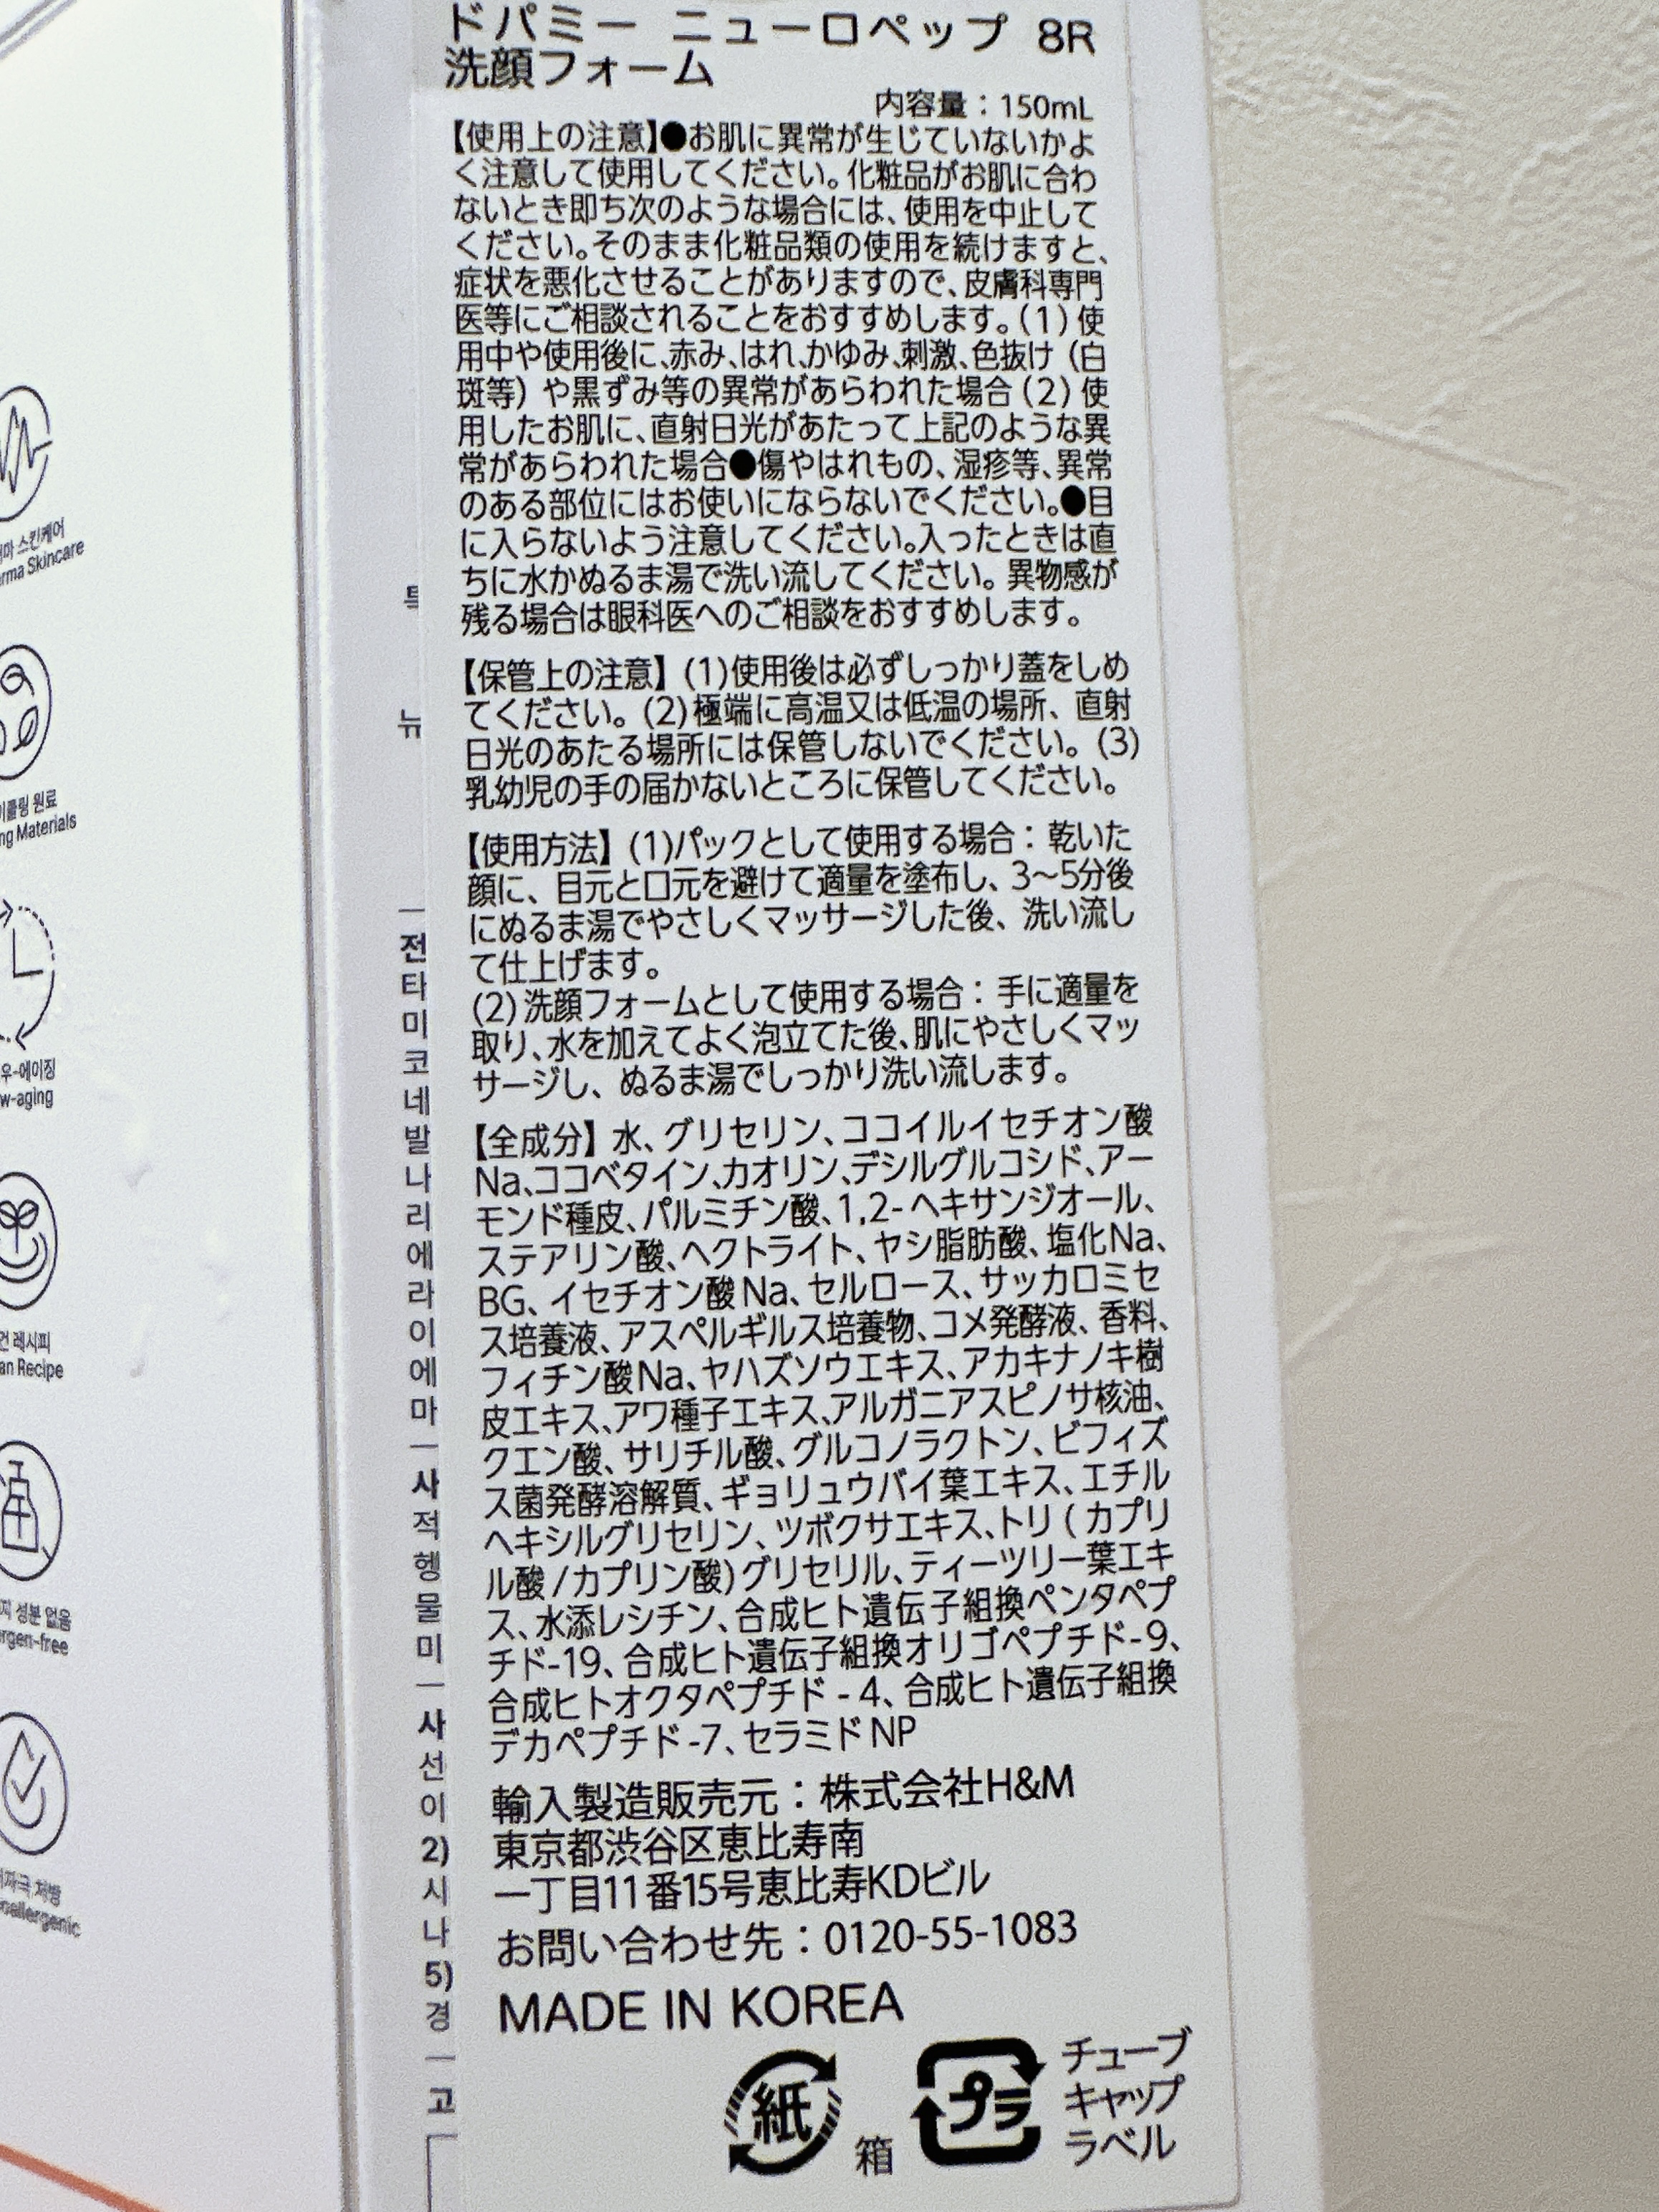 ドパミー ニューロペップ 8R
洗顔フォーム
内容量：150mL
【使用上の注意】●お肌に異常が生じていないかよ
く注意して使用してください。化粧品がお肌に合わ
ないとき即ち次のような場合には、使用を中止して
ください。そのまま化粧品類の使用を続けますと、
症状を悪化させることがありますので、皮膚科専門
医等にご相談されることをおすすめします。(1) 使
用中や使用後に、赤み、はれ、かゆみ、刺激、色抜け（白
斑等）や黒ずみ等の異常があらわれた場合 (2) 使
用したお肌に、直射日光があたって上記のような異
常があらわれた場合●傷やはれもの、湿疹等、異常
のある部位にはお使いにならないでください。●目
に入らないよう注意してください。入ったときは直
ちに水かぬるま湯で洗い流してください。異物感が
残る場合は眼科医へのご相談をおすすめします。
【保管上の注意】(1)使用後は必ずしっかり蓋をしめ
てください。(2) 極端に高温又は低温の場所、直射
日光のあたる場所には保管しないでください。(3)
乳幼児の手の届かないところに保管してください。
【使用方法】(1)パックとして使用する場合：乾いた
顔に、目元と口元を避けて適量を塗布し、3〜5分後
にぬるま湯でやさしくマッサージした後、洗い流し
て仕上げます。
(2) 洗顔フォームとして使用する場合：手に適量を
取り、水を加えてよく泡立てた後、肌にやさしくマッ
サージし、ぬるま湯でしっかり洗い流します。
【全成分】水、グリセリン、ココイルイセチオン酸
Na、ココベタイン、カオリン、デシルグルコシド、アー
モンド種皮、パルミチン酸、1,2-ヘキサンジオール、
ステアリン酸、ヘクトライト、ヤシ脂肪酸、塩化Na、
BG、イセチオン酸Na、セルロース、サッカロミセ
ス培養液、アスペルギルス培養物、コメ発酵液、香料、
フィチン酸Na、ヤハズソウエキス、アカキナノキ樹
皮エキス、アワ種子エキス、アルガニアスピノサ核油、
クエン酸、サリチル酸、グルコノラクトン、ビフィズ
ス菌発酵溶解質、ギョリュウバイ葉エキス、エチル
ヘキシルグリセリン、ツボクサエキス、トリ ( カプリ
ル酸 / カプリン酸) グリセリル、ティーツリー葉エキ
ス、水添レシチン、合成ヒト遺伝子組換ペンタペプ
チド-19、合成ヒト遺伝子組換オリゴペプチド-9、
合成ヒトオクタペプチド - 4、合成ヒト遺伝子組換
デカペプチド -7、セラミド NP
輸入製造販売元：株式会社H&M
東京都渋谷区恵比寿南
一丁目11番15号恵比寿KDビル
お問い合わせ先：0120-55-1083
MADE IN KOREA
紙
箱
プラ
チューブ
キャップ
ラベル
스킨케어
Skincare
원료
Materials
우-에이징
w-aging
레시피
Recipe
성분 없음
rgen-free
뉴
전
타
미
코
네
발
나
리
에
라
이
에
마
사
적
헹
물
미
사
선
이
2)
시
나
5)
경
고